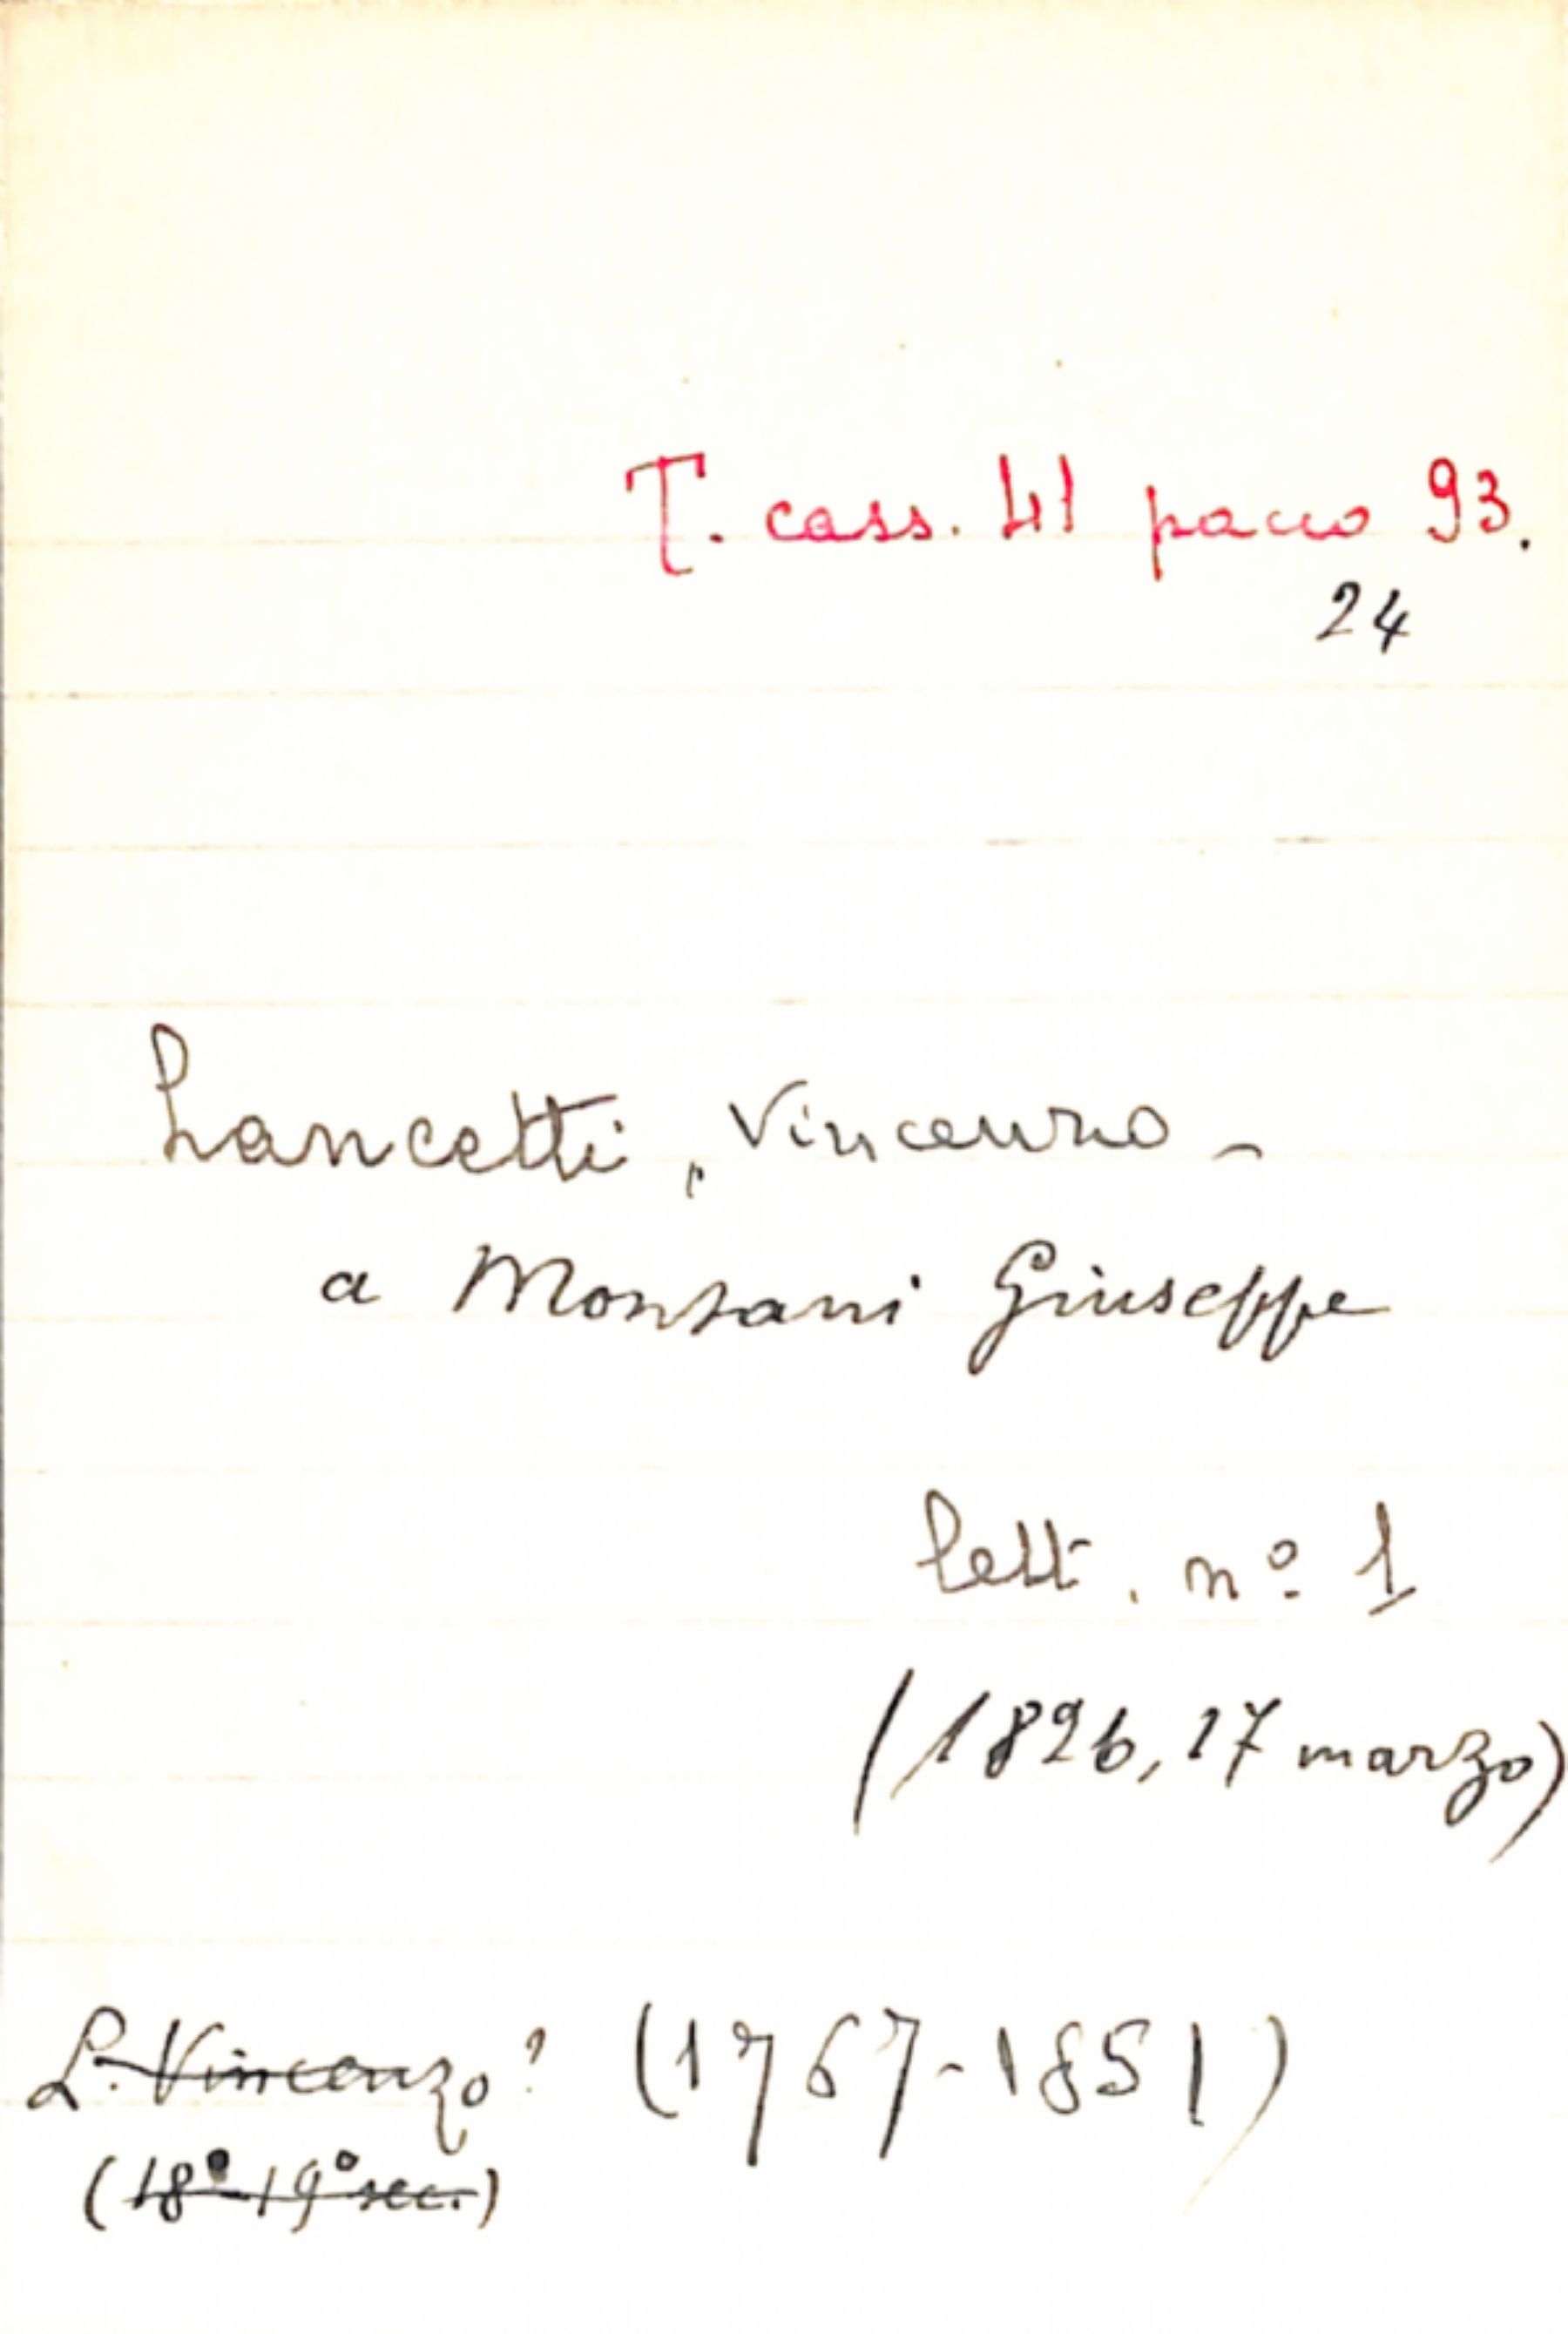 T. cass. 41 pacco 93.
24
Lancetti, Vincenzo -
a Montani Giuseppe
lett. nº 1
(1826, 17 marzo)
L. Vincenzo? (1767-1851)
(18º-19º sec.)